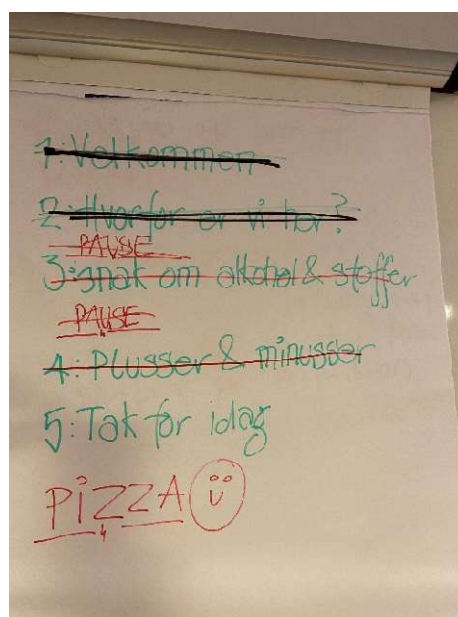 1: Velkommen
2: Hvorfor er vi her?
PAUSE
3: snak om alkohol & stoffer
PAUSE
4: Plusser & minusser
5: Tak for idag
PiZZA